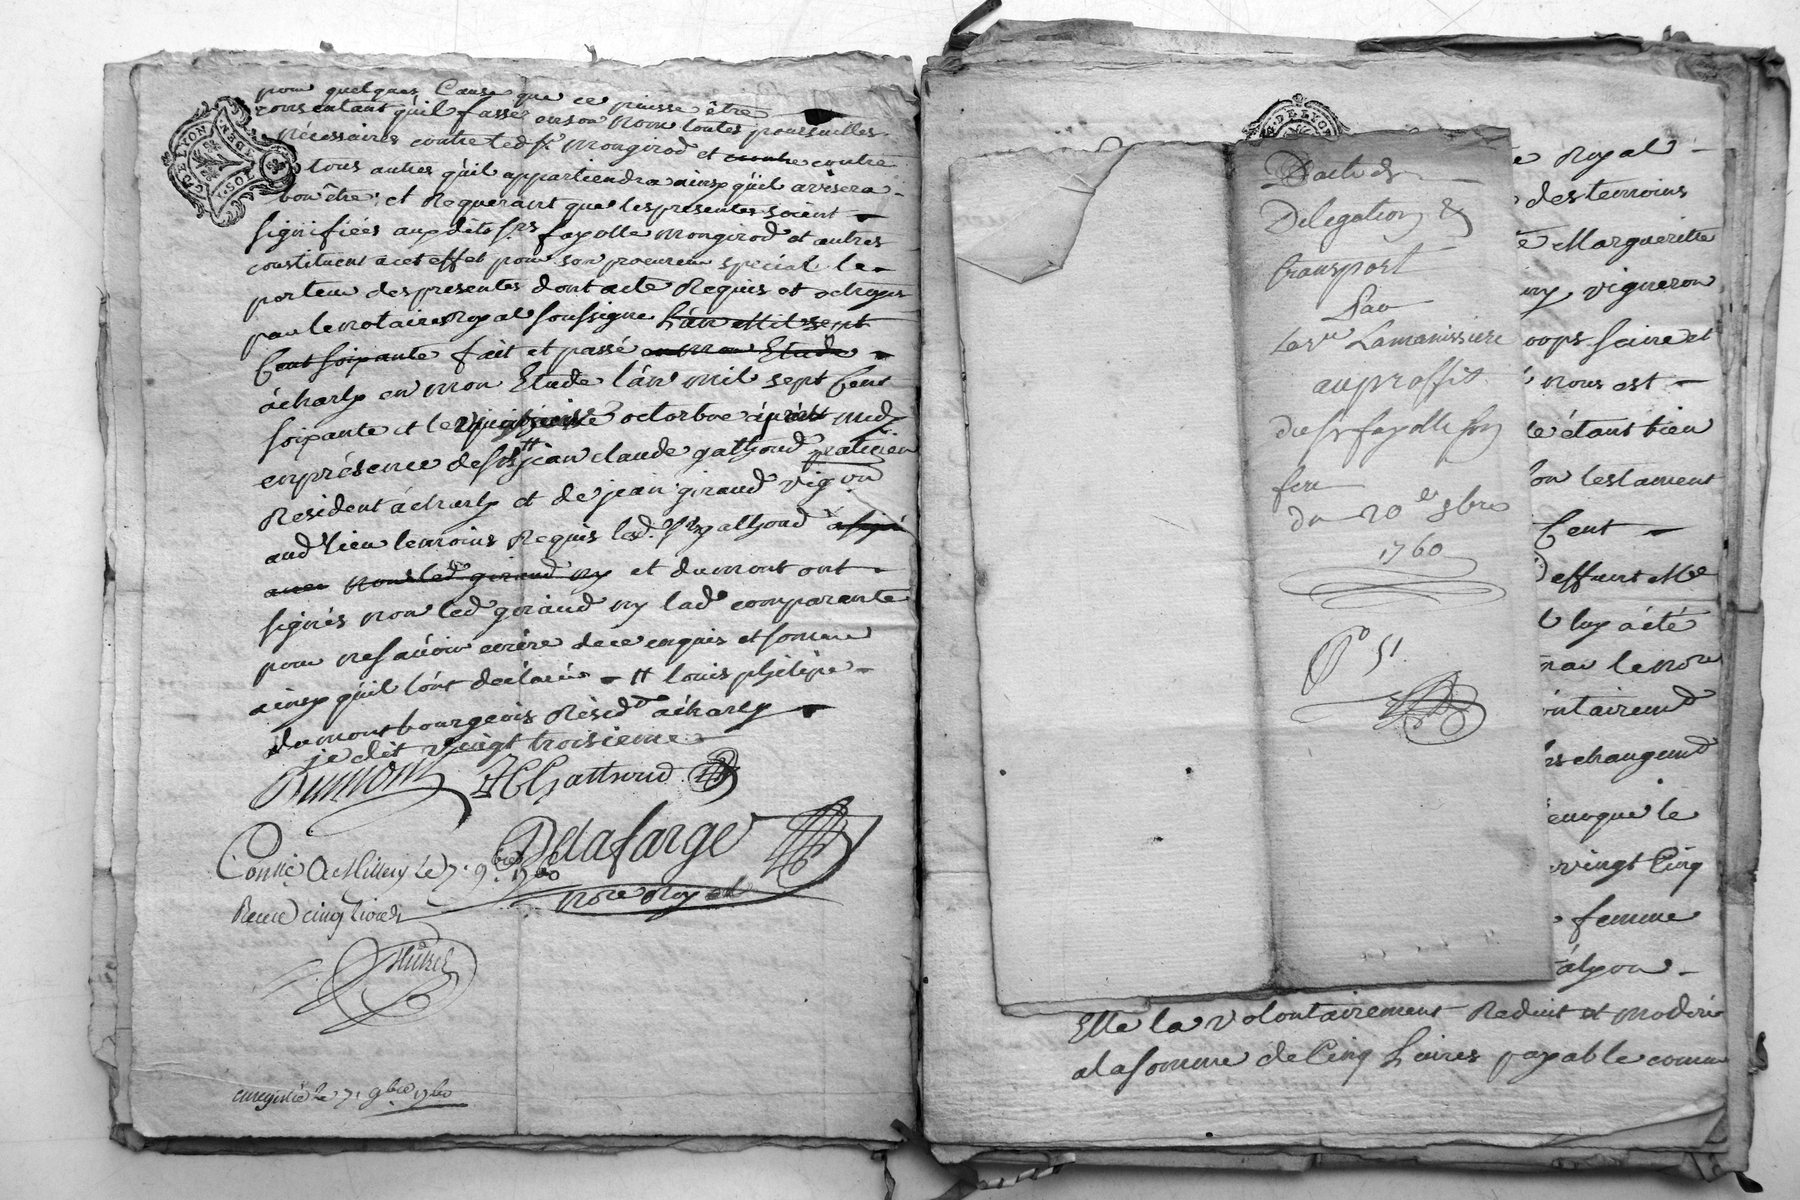 pour quelques Cause que ce puisse être
consentant qu'il fasse en son nom toutes poursuittes
nécessaires contre led sr mongirod et contre contre
tous autres qu'il appartiendra ainsy qu'il avisera
bon être, et Requerant que les presentes soient
signifiées auxdits srs fayolle mongirod et autres
constituent a cet effet pour son procureur special le
porteur des presentes dont acte Requis et octroyés
par le notaire Royal soussigné L'an Mil sept
Cent soixante fait et passé en mon Etude
à charly en mon Etude l'an mil sept Cent
soixante et le octobre après midy
en présence de sr jean claude gathoud praticien
Resident à charly et de jean giraud vigon
aud lieu temoins Requis led. sr gathoud a signé
avec nous led giraud ny et dumont ont
signés non led giraud ny lade comparante
pour ne savoir ecrire de ce enquis et somme
ainsy qu'il l'ont déclaré # louis philipe
dumont bourgeois Résidt à charly
je dit vingt troisieme
Dumont JC Gathoud
Delafarge
nore Royal
Conlle A Millery le 7. 9bre 1760
Receu cinq livres
enregistré le 7. 9bre 1760
DE LYON
Dacte de
Delegation &
transport
Par
La ve Lamanissiere
au proffit
du sr fayolle
du 20e 8bre
1760
51.
Royal
des temoins
Margueritte
vigneron
corps saine et
nous est
étant bien
testament
Cent
effunt Me
luy a été
le nore
ontairemd
changemd
evoque le
vingt Cinq
femme
à lyon
Elle la volontairement Reduit et moderé
a la somme de Cinq Livres payable comme